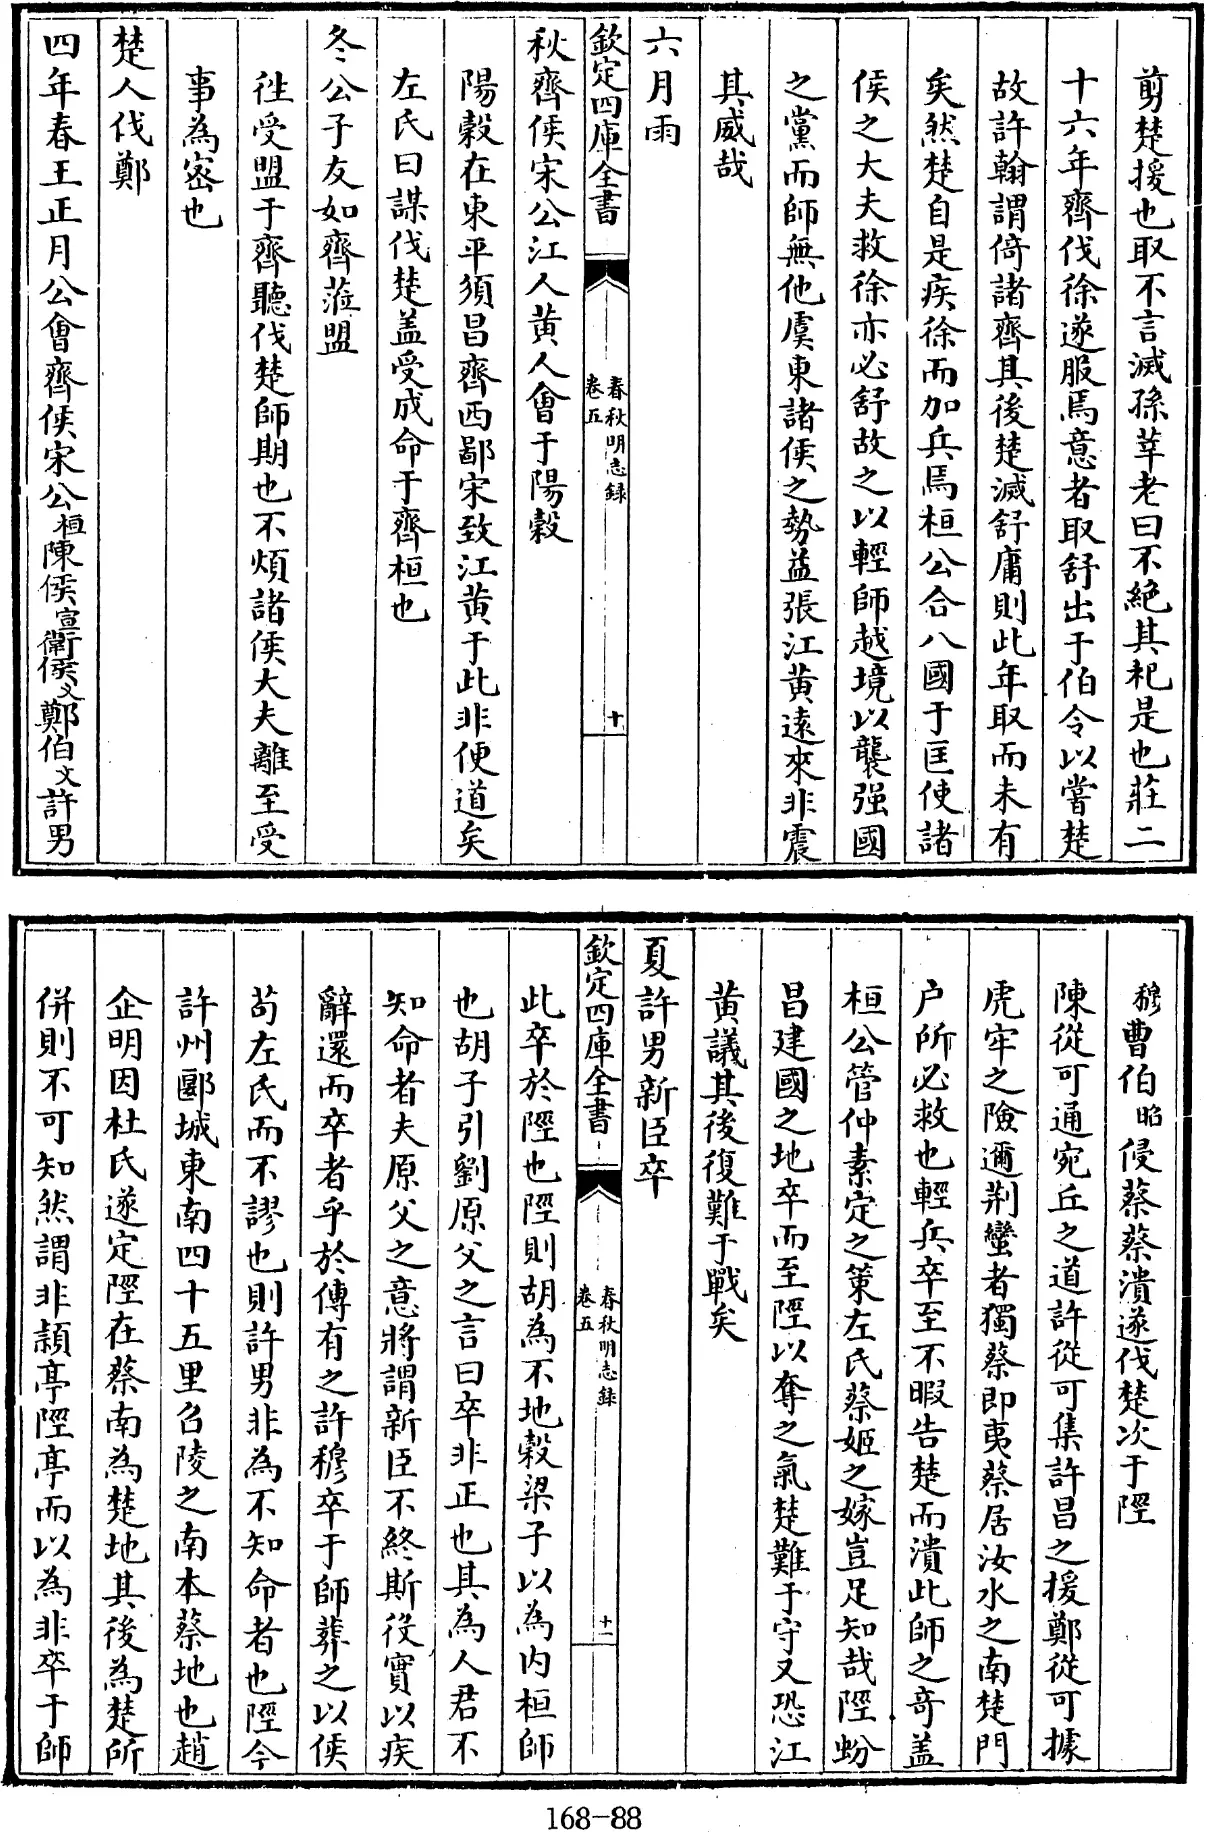 剪楚援也取不言滅孫莘老曰不絶其祀是也莊二
十六年齊伐徐遂服焉意者取舒出于伯令以嘗楚
故許翰謂倚諸齊其後楚滅舒庸則此年取而未有
矣然楚自是疾徐而加兵焉桓公合八國于匡使諸
侯之大夫救徐亦必舒故之以輕師越境以襲强國
之黨而師無他虞東諸侯之勢益張江黄遠來非震
其威哉
六月雨
欽定四庫全書
春秋明志録
卷五
十
秋齊侯宋公江人黄人會于陽榖
陽榖在東平須昌齊西鄙宋致江黄于此非便道矣
左氏曰謀伐楚盖受成命于齊桓也
冬公子友如齊蒞盟
徃受盟于齊聽伐楚師期也不煩諸侯大夫離至受
事為宻也
楚人伐鄭
四年春王正月公會齊侯宋公桓陳侯宣衛侯文鄭伯文許男
穆曹伯昭侵蔡蔡潰遂伐楚次于陘
陳從可通宛丘之道許從可集許昌之援鄭從可據
虎牢之險邇荆蠻者獨蔡即夷蔡居汝水之南楚門
户所必救也輕兵卒至不暇告楚而潰此師之奇盖
桓公管仲素定之策左氏蔡姬之嫁豈足知哉陘蚡
昌建國之地卒而至陘以奪之氣楚難于守又恐江
黄議其後復難于戰矣
夏許男新臣卒
欽定四庫全書
春秋明志録
卷五
十一
此卒於陘也陘則胡為不地榖梁子以為内桓師
也胡子引劉原父之言曰卒非正也其為人君不
知命者夫原父之意將謂新臣不終斯役實以疾
辭還而卒者乎於傳有之許穆卒于師葬之以侯
苟左氏而不謬也則許男非為不知命者也陘今
許州郾城東南四十五里召陵之南本蔡地也趙
企明因杜氏遂定陘在蔡南為楚地其後為楚所
併則不可知然謂非頴亭陘亭而以為非卒于師
168-88